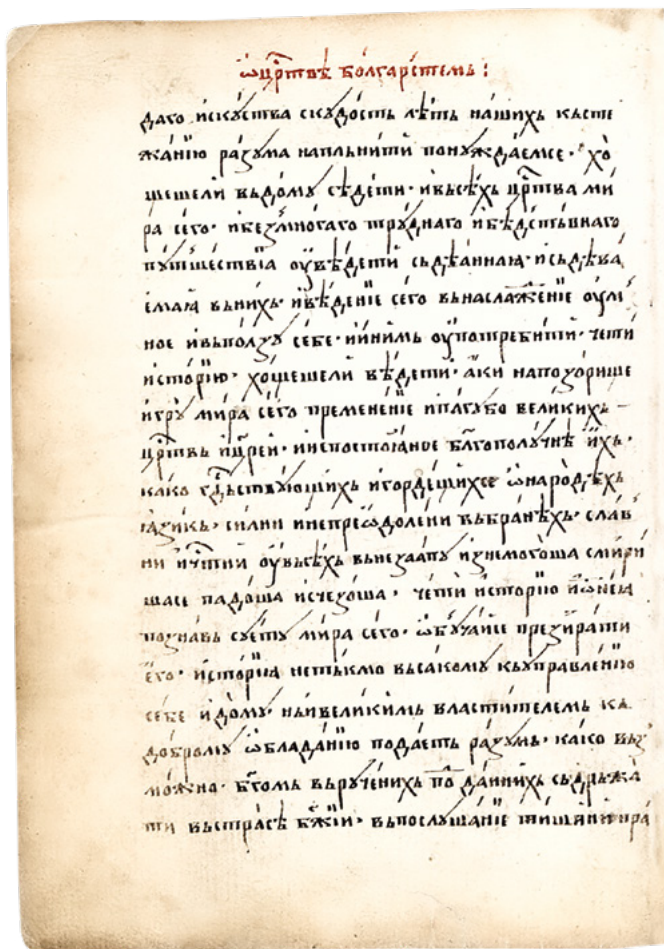 ѡ цр҃твѣ болгарстемь :
даго искꙋства скꙋдость лѣть нашихь кьсте
жанїю разꙋма напльнити понꙋждаемсе · хо
щешели вьдомꙋ сѣдети · ивьсѣхь цр҃тва ми
ра сего · ибезмногаго трꙋднаго ибѣдстьвнаго
пꙋтшествїа ѹвѣдети сьдѣаннаꙗ · исьдѣва
емаꙗ вьнихь · ивѣденїе сего вьнаслажⷣенїе ѹм
ное ивьползꙋ себе · иинимь ѹпотребити · чети
исторїю · хощешели вѣдети · аки напозорище
игрꙋ мира сего пременение ипагꙋбо великихь
цр҃твь ицр҃еи · инепостоꙗное бл҃гополꙋчїе ихь ·
како гд҃ьствꙋющихь игордещихсе ѡнародѣхь
ꙗзикь · силни инепреѡдолени вьбранѣхь · слав
ни ичⷭ҇тни ѹвьсѣхь вьнезаапꙋ изнемогоша смири
шасе падоша исчезоша · чети исторїю иѡнеꙗ
познавь сꙋетꙋ мира сего · ѡбꙋчаисе презирати
его · исторїа нетькмо вьсакомꙋ кьꙋправленїю
себе идомꙋ · ньивеликимь властителемь кь
добромꙋ ѡбладанїю подаеть разꙋмь · како вьз
можно · бг҃омь вьрꙋчених по данних сьдрьжа
ти вьстрасѣ бж҃їи · вьпослꙋшанїе тишини пра